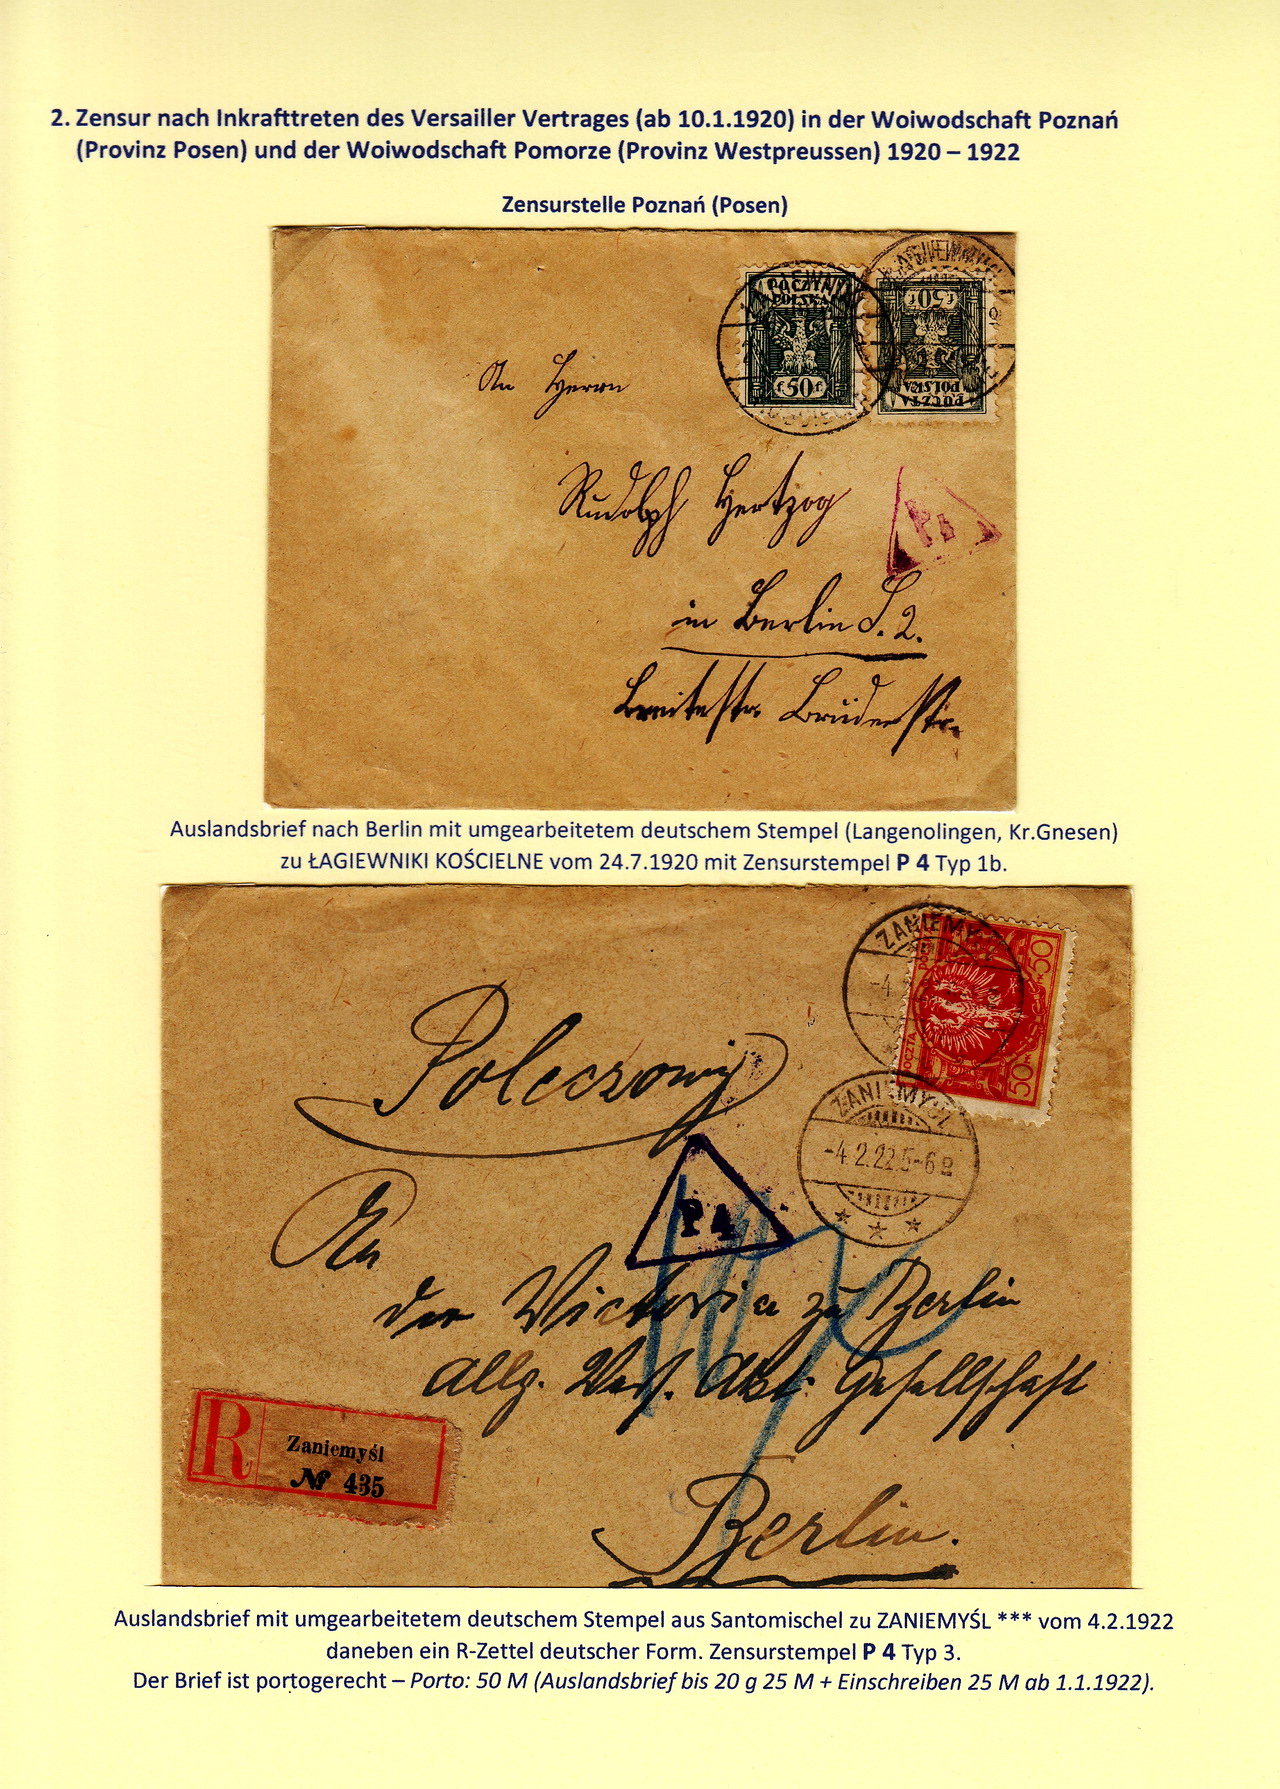 2. Zensur nach Inkrafttreten des Versailler Vertrages (ab 10.1.1920) in der Woiwodschaft Poznań
(Provinz Posen) und der Woiwodschaft Pomorze (Provinz Westpreussen) 1920 – 1922
Zensurstelle Poznań (Posen)
POCZTA
POLSKA
f 50 f
f 50 f
POLSKA
POCZTA
An Herrn
Rudolph Hertzog
P 4
in Berlin S. 2.
Breitestr. Brüderstr.
Auslandsbrief nach Berlin mit umgearbeitetem deutschem Stempel (Langenolingen, Kr.Gnesen)
zu ŁAGIEWNIKI KOŚCIELNE vom 24.7.1920 mit Zensurstempel P 4 Typ 1b.
ZANIEMYŚL
50
POCZTA
50
Poleczony
ZANIEMYŚL
-4.2.22.5-6
* * *
P 4
An
der Victoria zu Berlin
Allg. Vers. Akt. Gesellschaft
R
Zaniemyśl
№ 435
Berlin.
Auslandsbrief mit umgearbeitetem deutschem Stempel aus Santomischel zu ZANIEMYŚL *** vom 4.2.1922
daneben ein R-Zettel deutscher Form. Zensurstempel P 4 Typ 3.
Der Brief ist portogerecht – Porto: 50 M (Auslandsbrief bis 20 g 25 M + Einschreiben 25 M ab 1.1.1922).